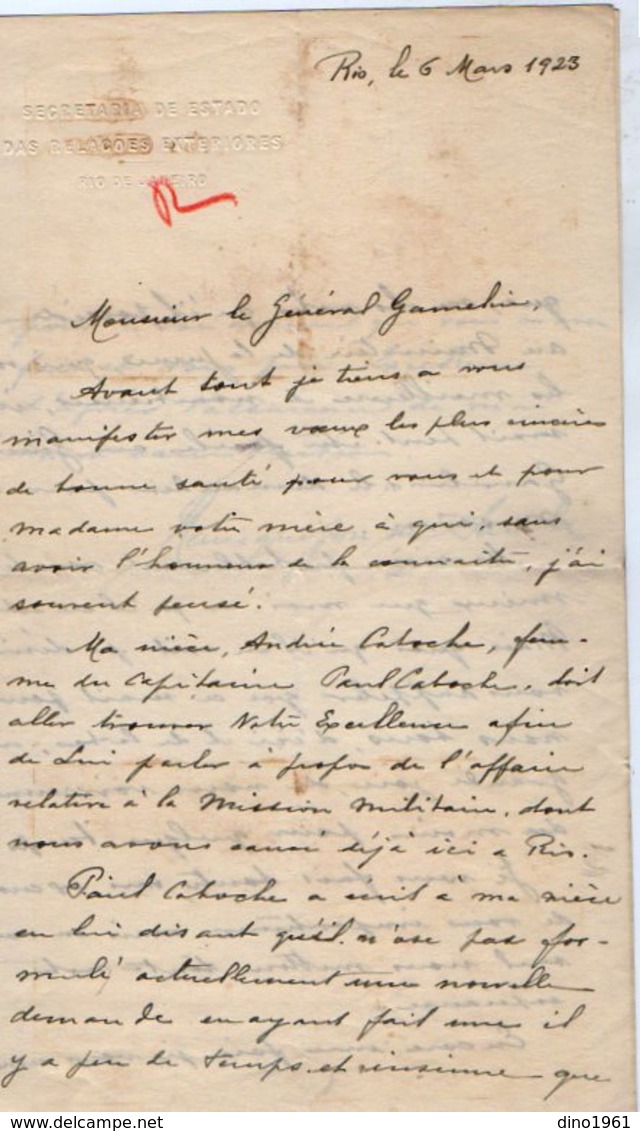 Rio, le 6 Mars 1923
SECRETARIA DE ESTADO
DAS RELAÇÕES EXTERIORES
RIO DE JANEIRO
Monsieur le Général Gamelin,
Avant tout je tiens a vous
manifester mes vœux les plus sincères
de bonne santé pour vous et pour
madame votre mère à qui, sans
avoir l'honneur de la connaître, j'ai
souvent pensé.
Ma nièce, Andrée Caboche, fem-
me du Capitaine Paul Caboche, doit
aller trouver Votre Excellence afin
de Lui parler à propos de l'affaire
relative à la Mission Militaire, dont
nous avons causé déjà ici a Rio.
Paul Caboche a écrit a ma nièce
en lui disant qu'il n'ose pas for-
muler actuellement une nouvelle
demande en ayant fait une il
y a peu de temps et que
dino1961